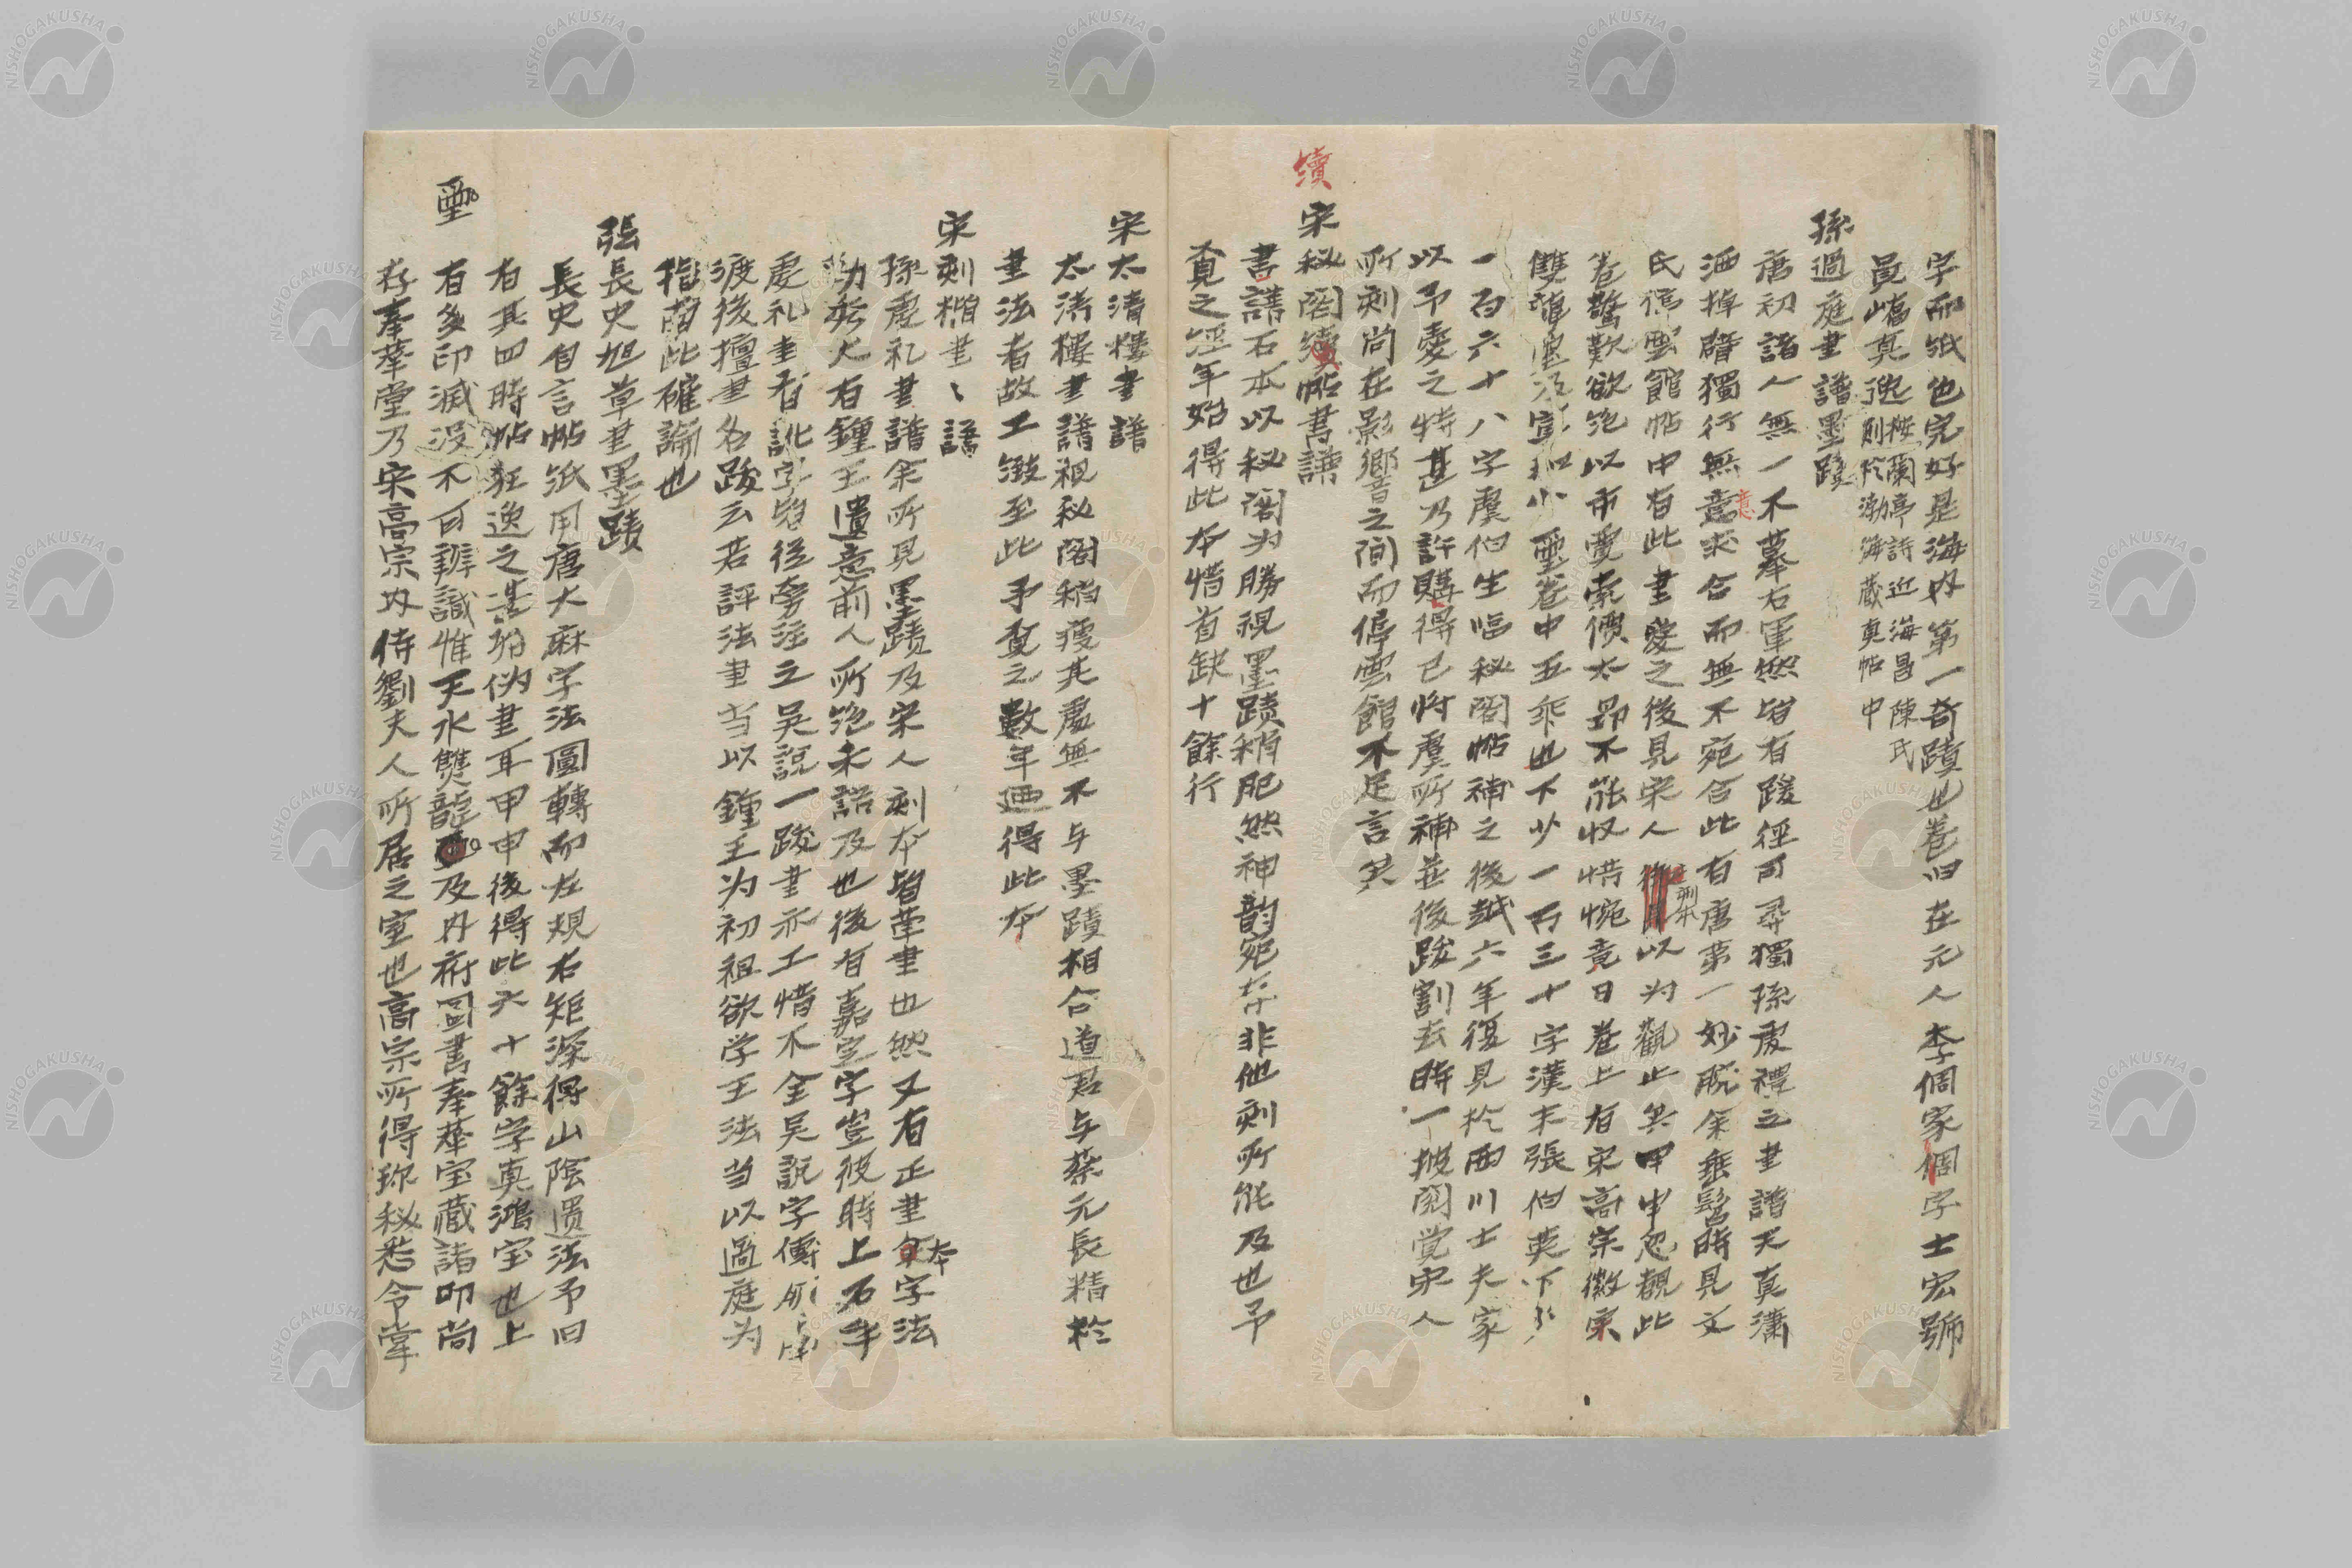 字而紙也完好是海内第一奇蹟也卷旧在元人李倜家倜字士宏號
員嶠真逸
按蘭亭詩近海昌陳氏
則於渤海藏真帖中
孫過庭書譜墨蹟
唐初諸人無一不摹右軍然皆有蹊徑可尋獨孫虔禮之書譜天真瀟
洒掉臂獨行無意求合而無不宛合此有唐第一妙腕余垂髫時見文
意
氏停雲館帖中有此書愛之後見宋人以为觀止矣甲申忽觀此
刻本
卷驚歎欲絶以市賈索價太昂不能收惜惋竟日卷上有宋高宗徽宗
雙龍璽及宣和小璽卷中五乖也下少一百三十字漢末張伯英下少
一百六十八字虞伯生临秘閣帖補之後越六年復見於西川士夫家
以予愛之特甚乃許購得已将虞所補并後跋割去時一披閱觉宋人
所刻尚在影響之间而停雲館不足言矣
續
宋秘閣續帖書譜
書譜石本以秘閣为勝視墨蹟稍肥然神韵宛存非他刻所能及也予
覓之經年始得此本惜首缺十餘行
宋太清樓書譜
太清樓書譜視秘閣稍瘦其處無不与墨蹟相合道君与蔡元長精於
書法者故工緻至此予覓之數年廼得此本
宋刻楷書〻譜
孫虔礼書譜余所見墨蹟及宋人刻本皆草書也然又有正書字法
本
勁媚大有鍾王遺意前人所绝未語及也後有嘉定字豈彼時上石乎
虔礼書有訛字皆從旁注之吴說一跋書亦工惜不全吴説字傅朋南
渡後擅書名跋云若評法書当以鍾王为初祖欲学王法当以過庭为
指南此確論也
張長史旭草書墨蹟
長史自言帖紙用唐大麻字法圓轉而左規右矩深得山陰遗法予旧
有其四時帖狂逸之甚殆伪書耳甲申後得此六十餘字真鴻宝也上
璽
有多印滅没不可辨識惟天水雙龍及内府圖書奉華宝藏諸印尚
存奉華堂乃宋高宗内侍劉夫人所居之室也高宗所得珎秘悉令掌